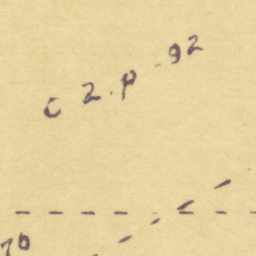 c 2. p. 92
70